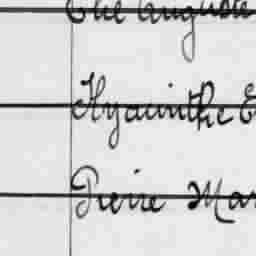 Auguste
Hyacinthe E
Pierre Mar